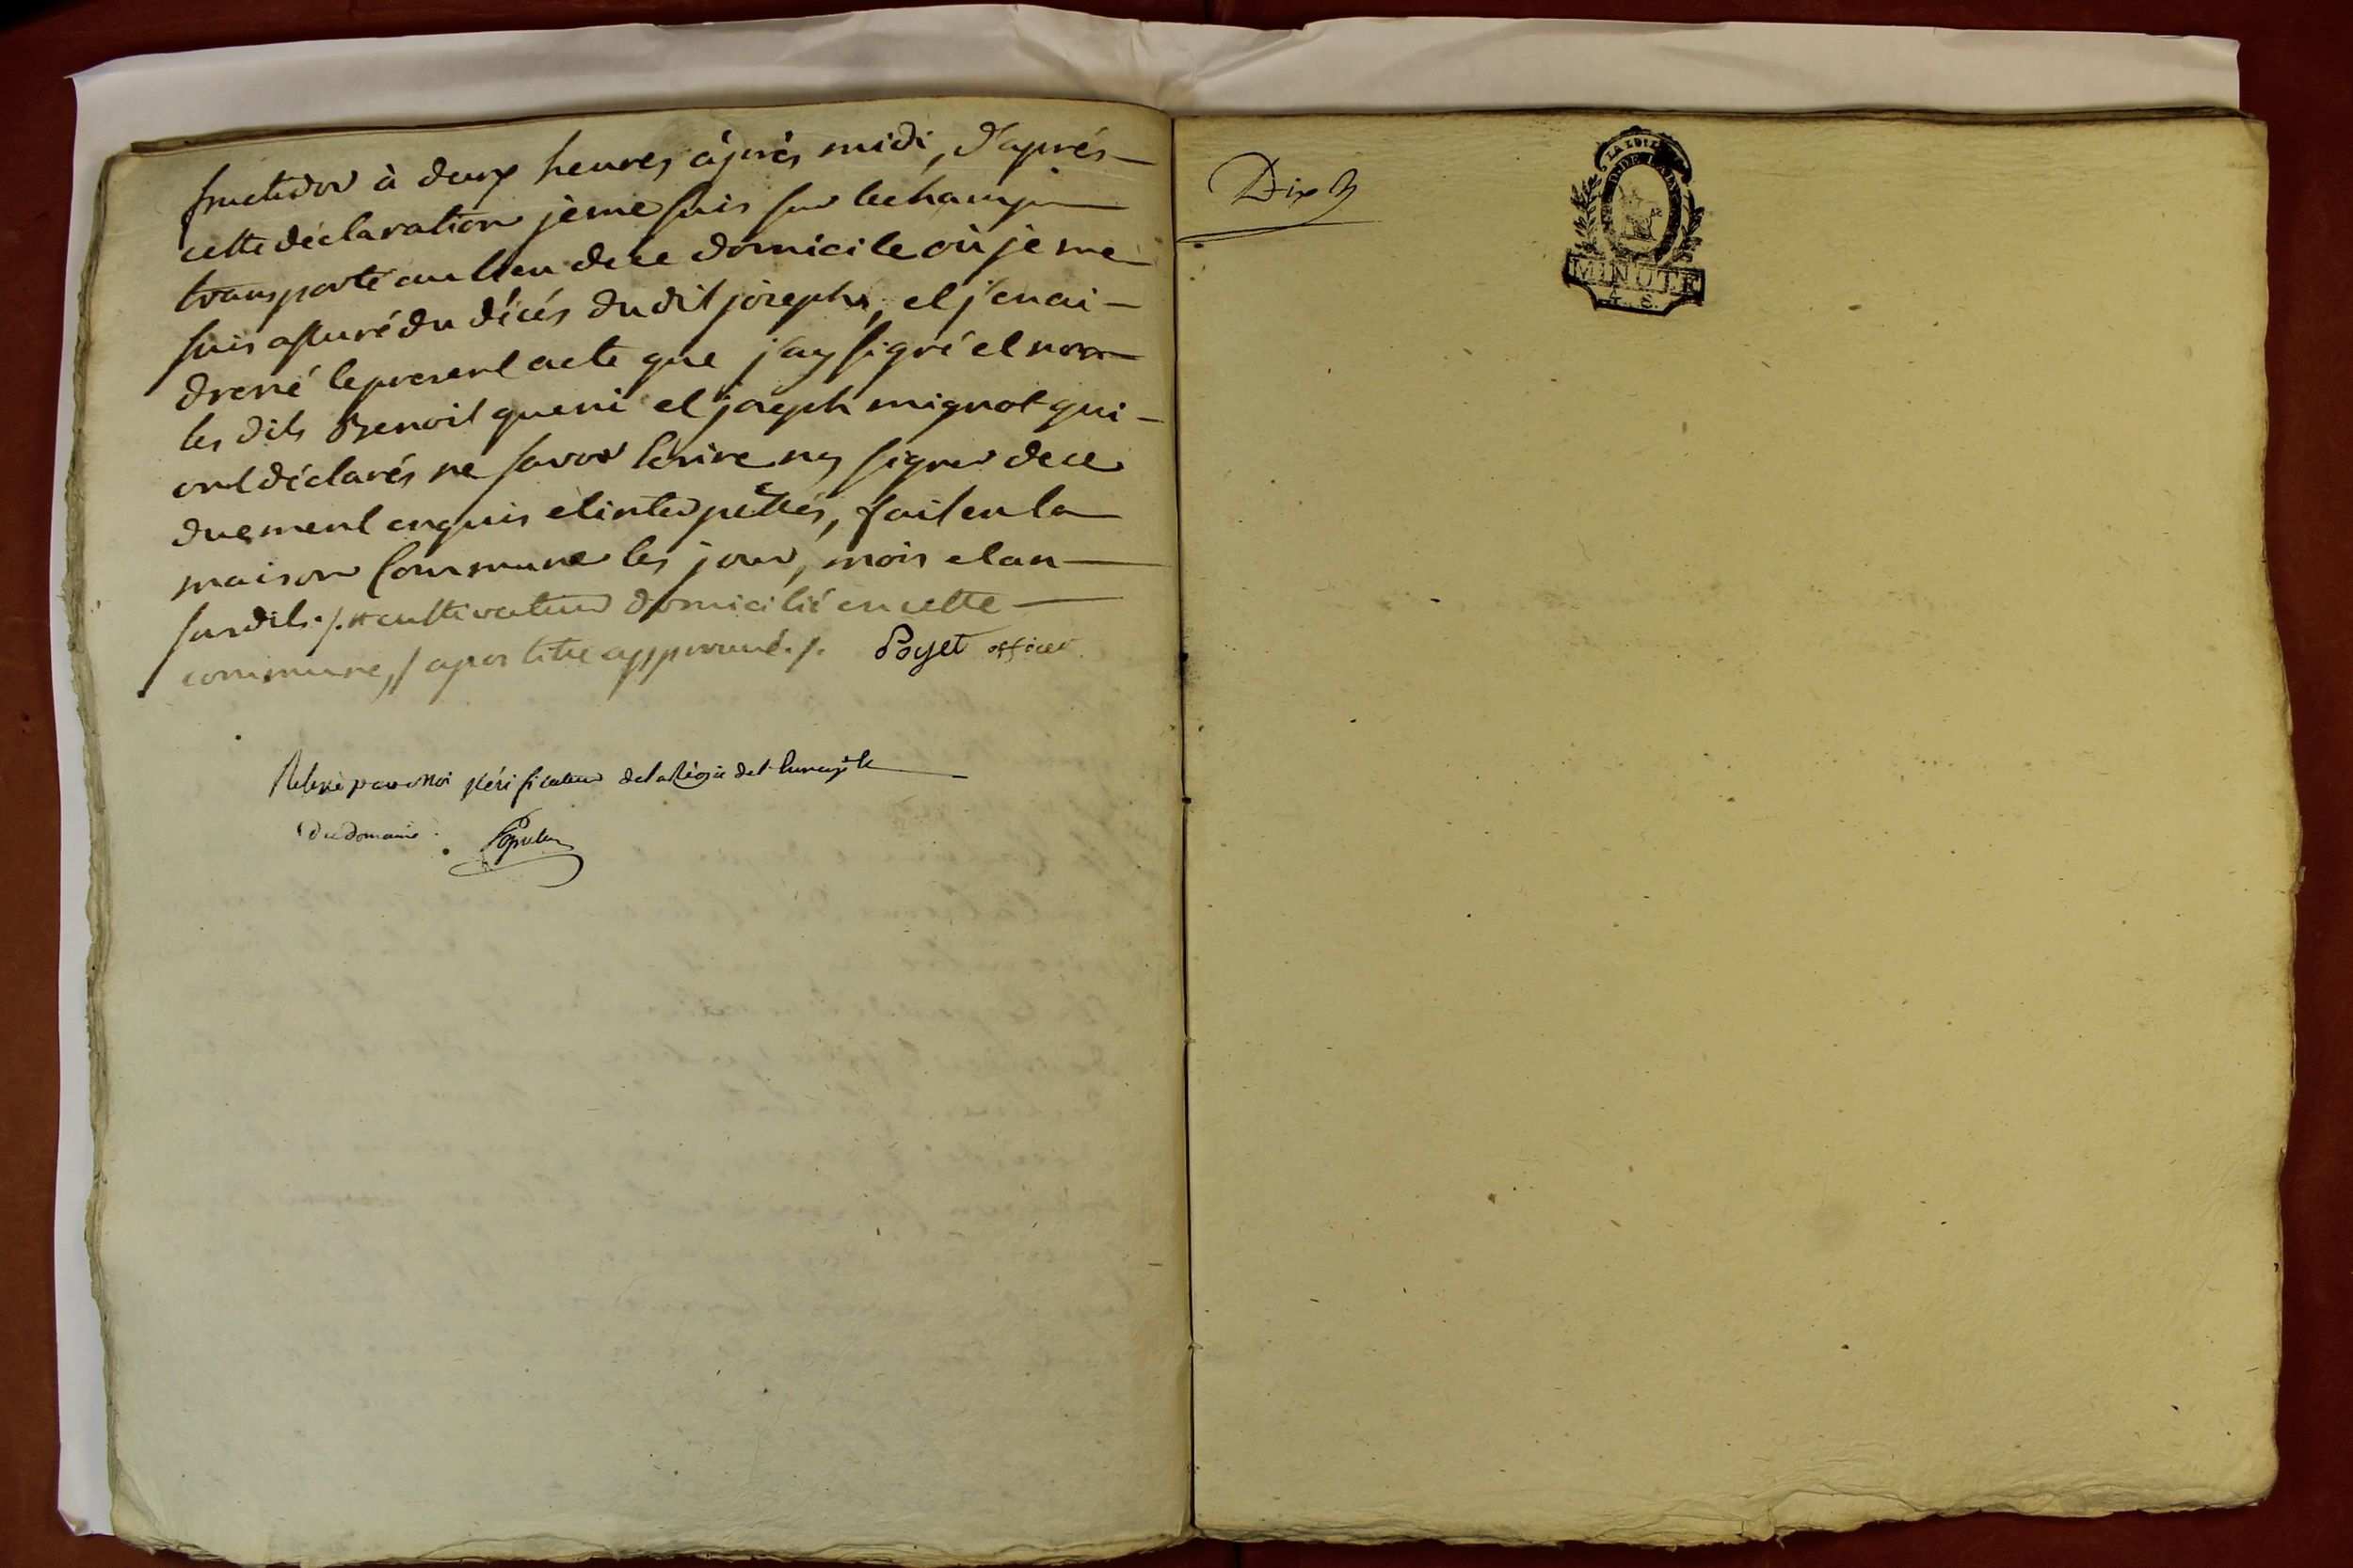 fructidor à deux heures après midi, d'aprés
cette déclaration je me suis sur le champ
transporté au lieu de ce domicile où je me
suis assuré du décés du dit joseph, et j'en ai
dressé le present acte que j'ay signé et non
les dits Benoit queni et joseph mignot qui
ont déclarés ne savoir lecrire ny signer de ce
duement enquis et interpellés, fait en la
maison Commune les jour, mois et an
susdits ./. cultivateur domicilié en cette
commune, / apostille approuvé ./. Poyet officer
par moi Vérificateur de la Régie de l'
du domaine.
Dix
LA LOI
MINUTE
4. S.